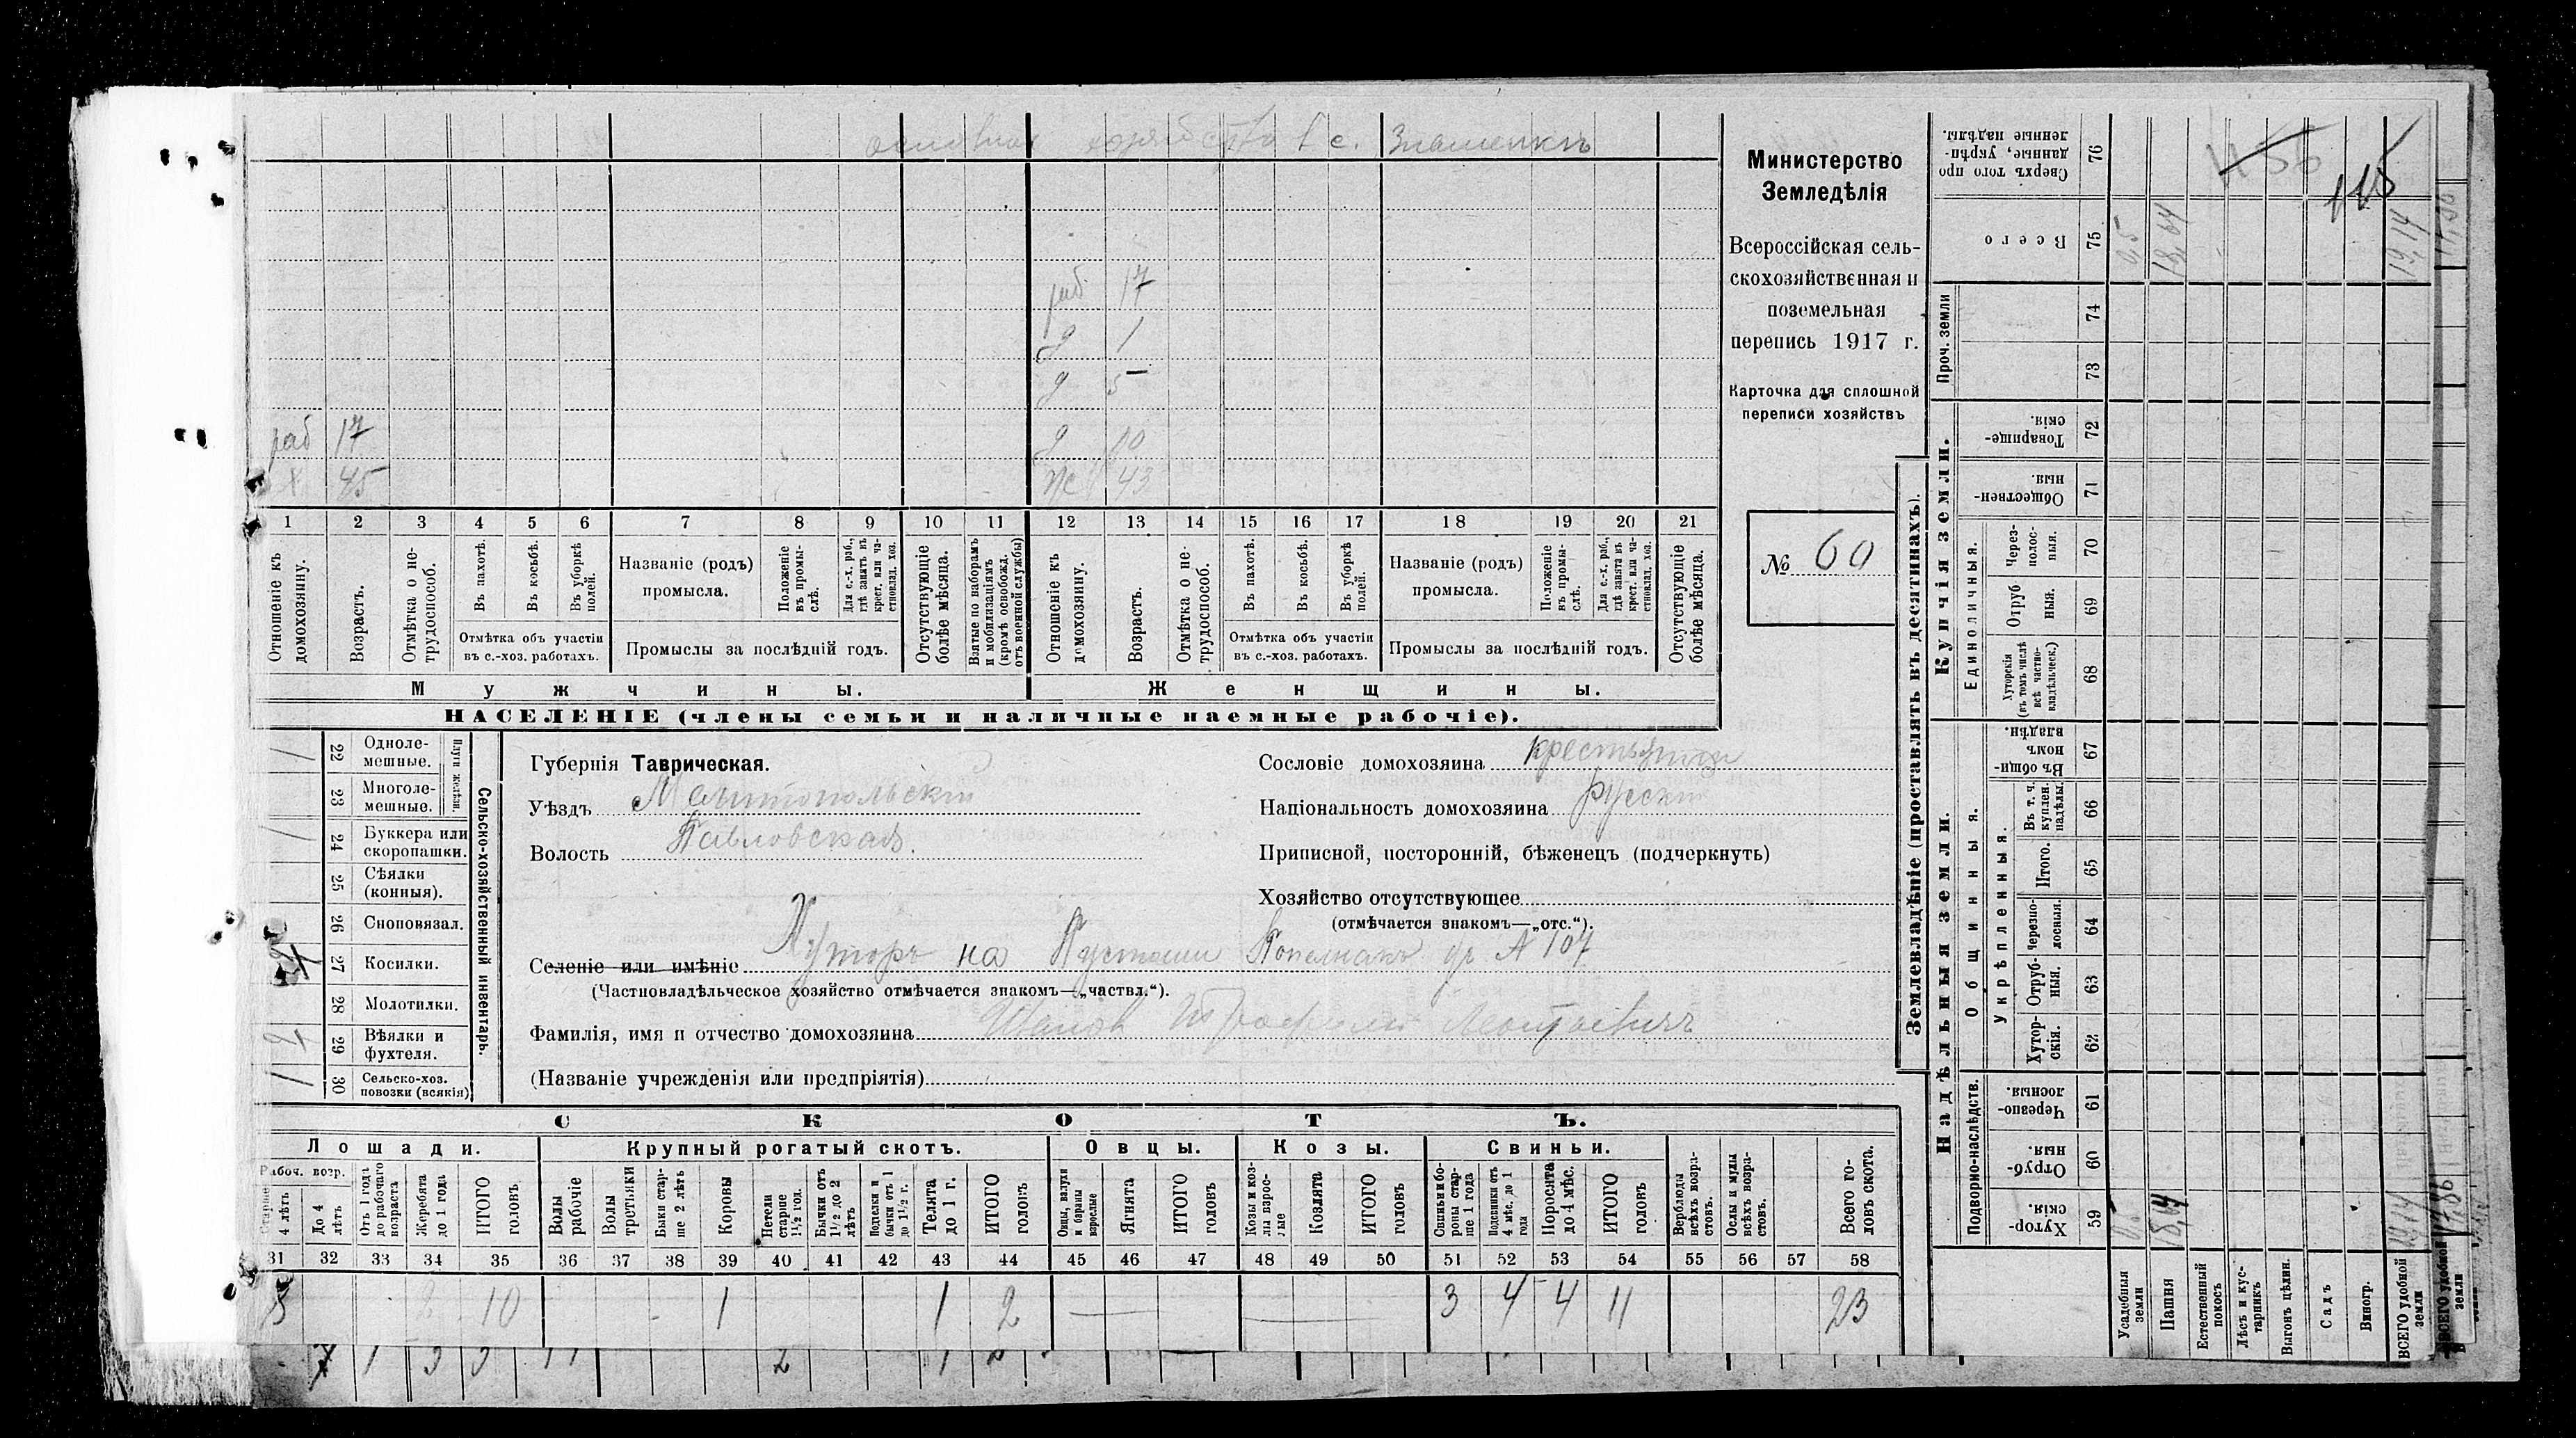 хозяйство в с. Знаменкѣ
раб 17
д 1
д 5
раб 17
д 10
х 45
ж 43
1 2 3 4 5 6 7 8 9 10 11 12 13 14 15 16 17 18 19 20 21
Отношеніе къ домохозяину.
Возрастъ.
Отмѣтка о не-трудоспособ.
Въ пахотѣ.
Въ косьбѣ.
Въ уборкѣ полей.
Отмѣтка объ участіи
въ с.-хоз. работахъ.
Названіе (родъ)
промысла.
Положеніе въ промы-слѣ.
Для с.-х. раб., гдѣ занятъ въ крест. или ча-стновлад. хоз.
Промыслы за послѣдній годъ.
Отсутствующіе болѣе мѣсяца.
Взятые по наборамъ и мобилизаціямъ (кромѣ освобожд. отъ военной службы)
Отношеніе къ домохозяину.
Возрастъ.
Отмѣтка о не-трудоспособ.
Въ пахотѣ.
Въ косьбѣ.
Въ уборкѣ полей.
Отмѣтка объ участіи
въ с.-хоз. работахъ.
Названіе (родъ)
промысла.
Положеніе въ промы-слѣ.
Для с.-х. раб., гдѣ занята въ крест. или ча-стновлад. хоз.
Промыслы за послѣдній годъ.
Отсутствующіе болѣе мѣсяца.
Мужчины.
Женщины.
НАСЕЛЕНІЕ (члены семьи и наличные наемные рабочіе).
Министерство
Земледѣлія
Всероссійская сель-
скохозяйственная и
поземельная
перепись 1917 г.
Карточка для сплошной
переписи хозяйствъ
№ 60
Сельско-хозяйственный инвентарь.
Плуги желѣзн.
1 22 Одноле-мешные.
23 Многоле-мешные.
1 24 Буккера или скоропашки.
25 Сѣялки (конныя).
26 Сноповязал.
27 Косилки.
28 Молотилки.
29 Вѣялки и фухтеля.
1 30 Сельско-хоз. повозки (всякія)
Губернія Таврическая.
Уѣздъ Мелитопольскій
Волость Павловская.
Селеніе или имѣніе Хуторъ на Пустоши № 107
(Частновладѣльческое хозяйство отмѣчается знакомъ—„частвл.“).
Фамилія, имя и отчество домохозяина Иванов Леонтьевич
(Названіе учрежденія или предпріятія)
Сословіе домохозяина крестьянин
Національность домохозяина русский
Приписной, посторонній, бѣженецъ (подчеркнуть)
Хозяйство отсутствующее
(отмѣчается знакомъ—„отс.“).
СКОТЪ.
Лошади.
Крупный рогатый скотъ.
Овцы.
Козы.
Свиньи.
Рабоч. возр.
Старше 4 лѣтъ
До 4 лѣтъ
Отъ 1 года до рабочаго возраста
Жеребята до 1 года
ИТОГО головъ
Волы рабочіе
Волы третьяки
Быки стар-ше 2 лѣтъ
Коровы
Нетели старше 1½ год.
Бычки отъ 1½ до 2 лѣтъ
Подтелки и бычки отъ 1 до 1½ г.
Телята до 1 г.
ИТОГО головъ
Овцы, валухи и бараны взрослые
Ягнята
ИТОГО головъ
Козы и коз-лы взрос-лые
Козлята
ИТОГО головъ
Свиньи и бо-роны стар-ше 1 года
Подсвинки отъ 4 мѣс. до 1 года
Поросята до 4 мѣс.
ИТОГО головъ
Верблюды всѣхъ возра-стовъ.
Ослы и мулы всѣхъ возра-стовъ.
Всего го-ловъ скота.
31 32 33 34 35 36 37 38 39 40 41 42 43 44 45 46 47 48 49 50 51 52 53 54 55 56 57 58
8 2 10 1 1 2 3 4 4 11 23
Землевладѣніе (проставлять въ десятинахъ).
Купчія земли.
Надѣльныя земли.
Проч. земли
Единоличныя.
Общинныя.
Укрѣпленныя.
Подворно-наслѣдств.
Сверхъ того про данные, укрѣп-ленные надѣлы. 76
Всего 75
74
73
Товарище-скія. 72
Обществен-ныя 71
Через-полос-ныя. 70
Отруб ныя. 69
Хуторскія (въ томъ числѣ всѣ частно-владѣльческ.) 68
Въ общи-номъ владѣн. 67
Въ т. ч. куплен. надѣлы. 66
Итого. 65
Черезпо-лосныя. 64
Отруб-ныя. 63
Хутор-скія. 62
Черезпо-лосныя. 61
Отруб-ныя 60
Хутор-скія. 59
Усадебныя земли
Пашня
Естественный покосъ
Лѣсъ и кус-тарникъ
Выгонъ цѣлин.
Садъ
Виногр.
ВСЕГО удобной земли
0,5
18,64
19,14
115
18,64
19,14